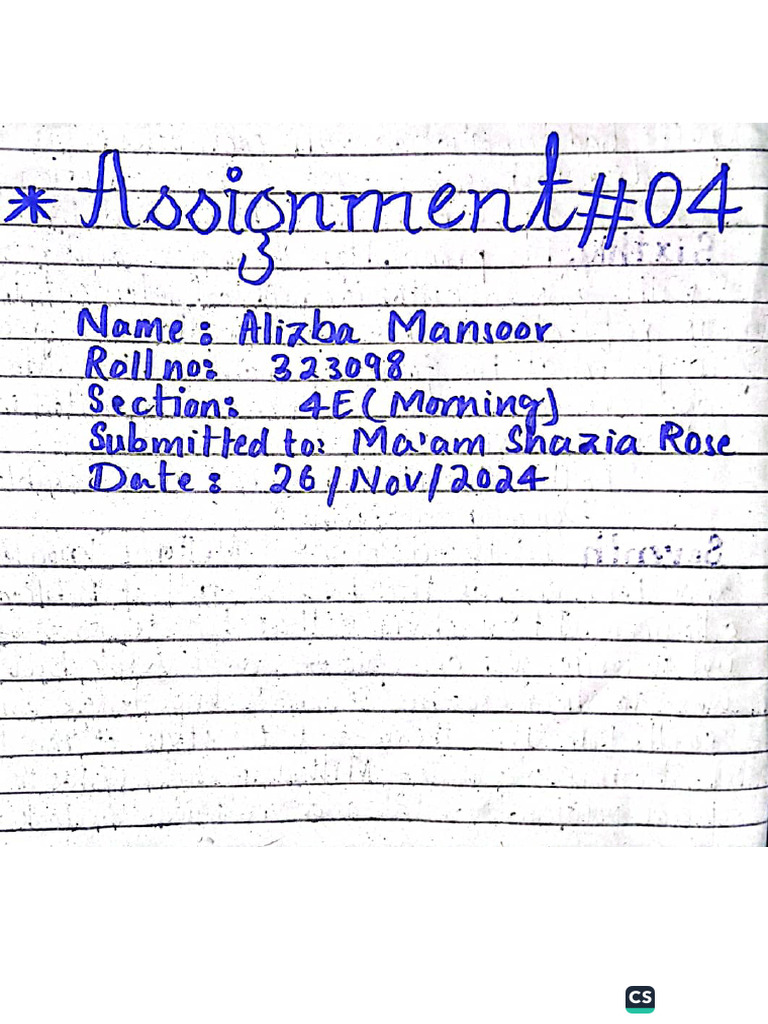 * Assignment #04
Name: Alizba Mansoor
Roll no: 323098
Section: 4E (Morning)
Submitted to: Ma'am Shazia Rose
Date: 26/Nov/2024
CS